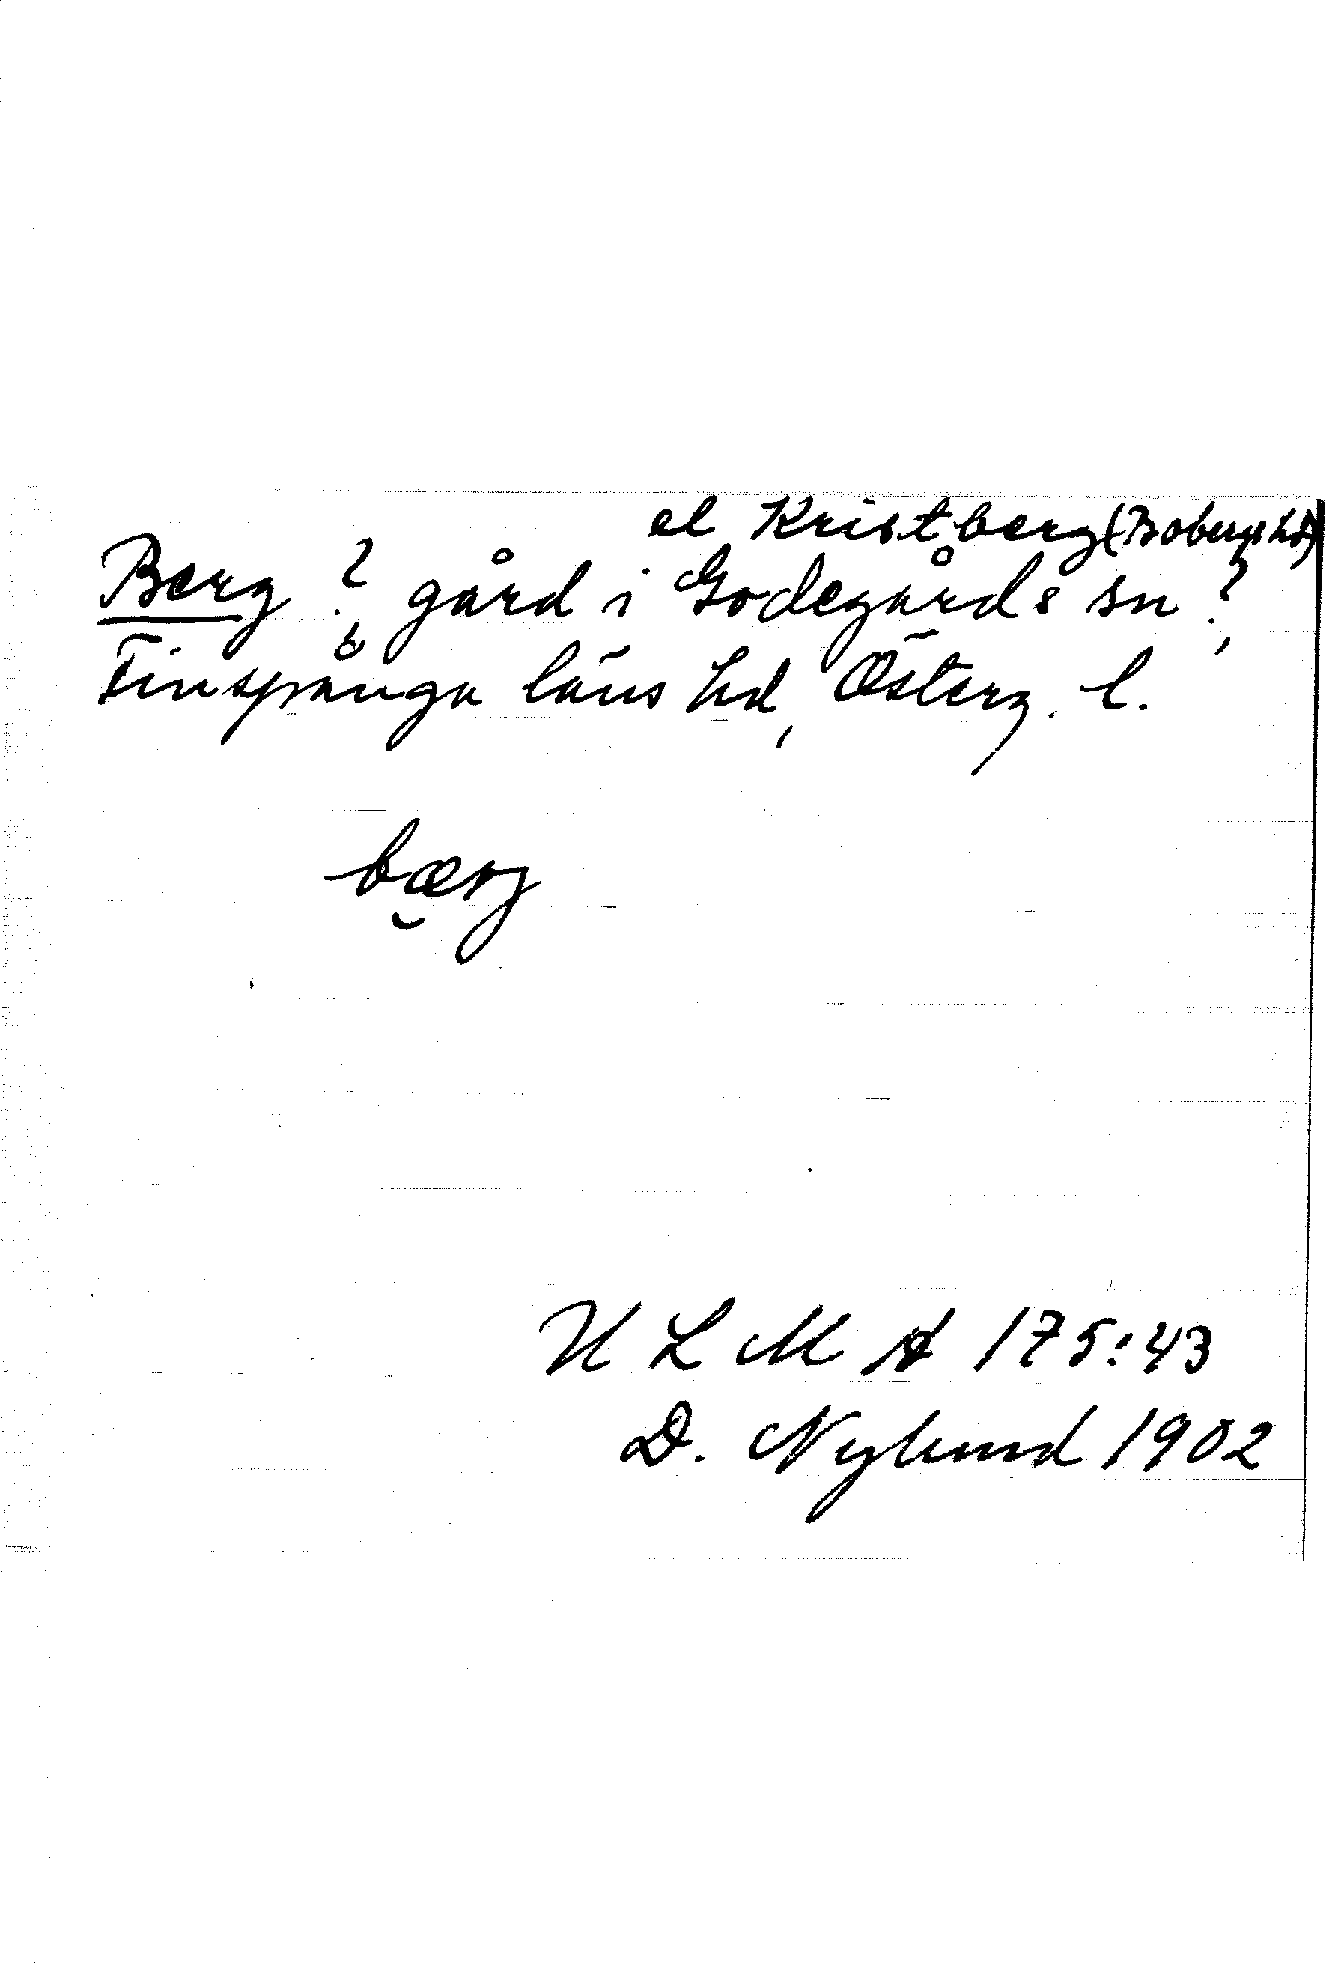 el Kristberg (Bobergs hd)
Berg ? gård i Godegårds sn ?,
Finspånga läns hd, Österg. l.
bærj
ULMA 175:43
D. Nylund 1902